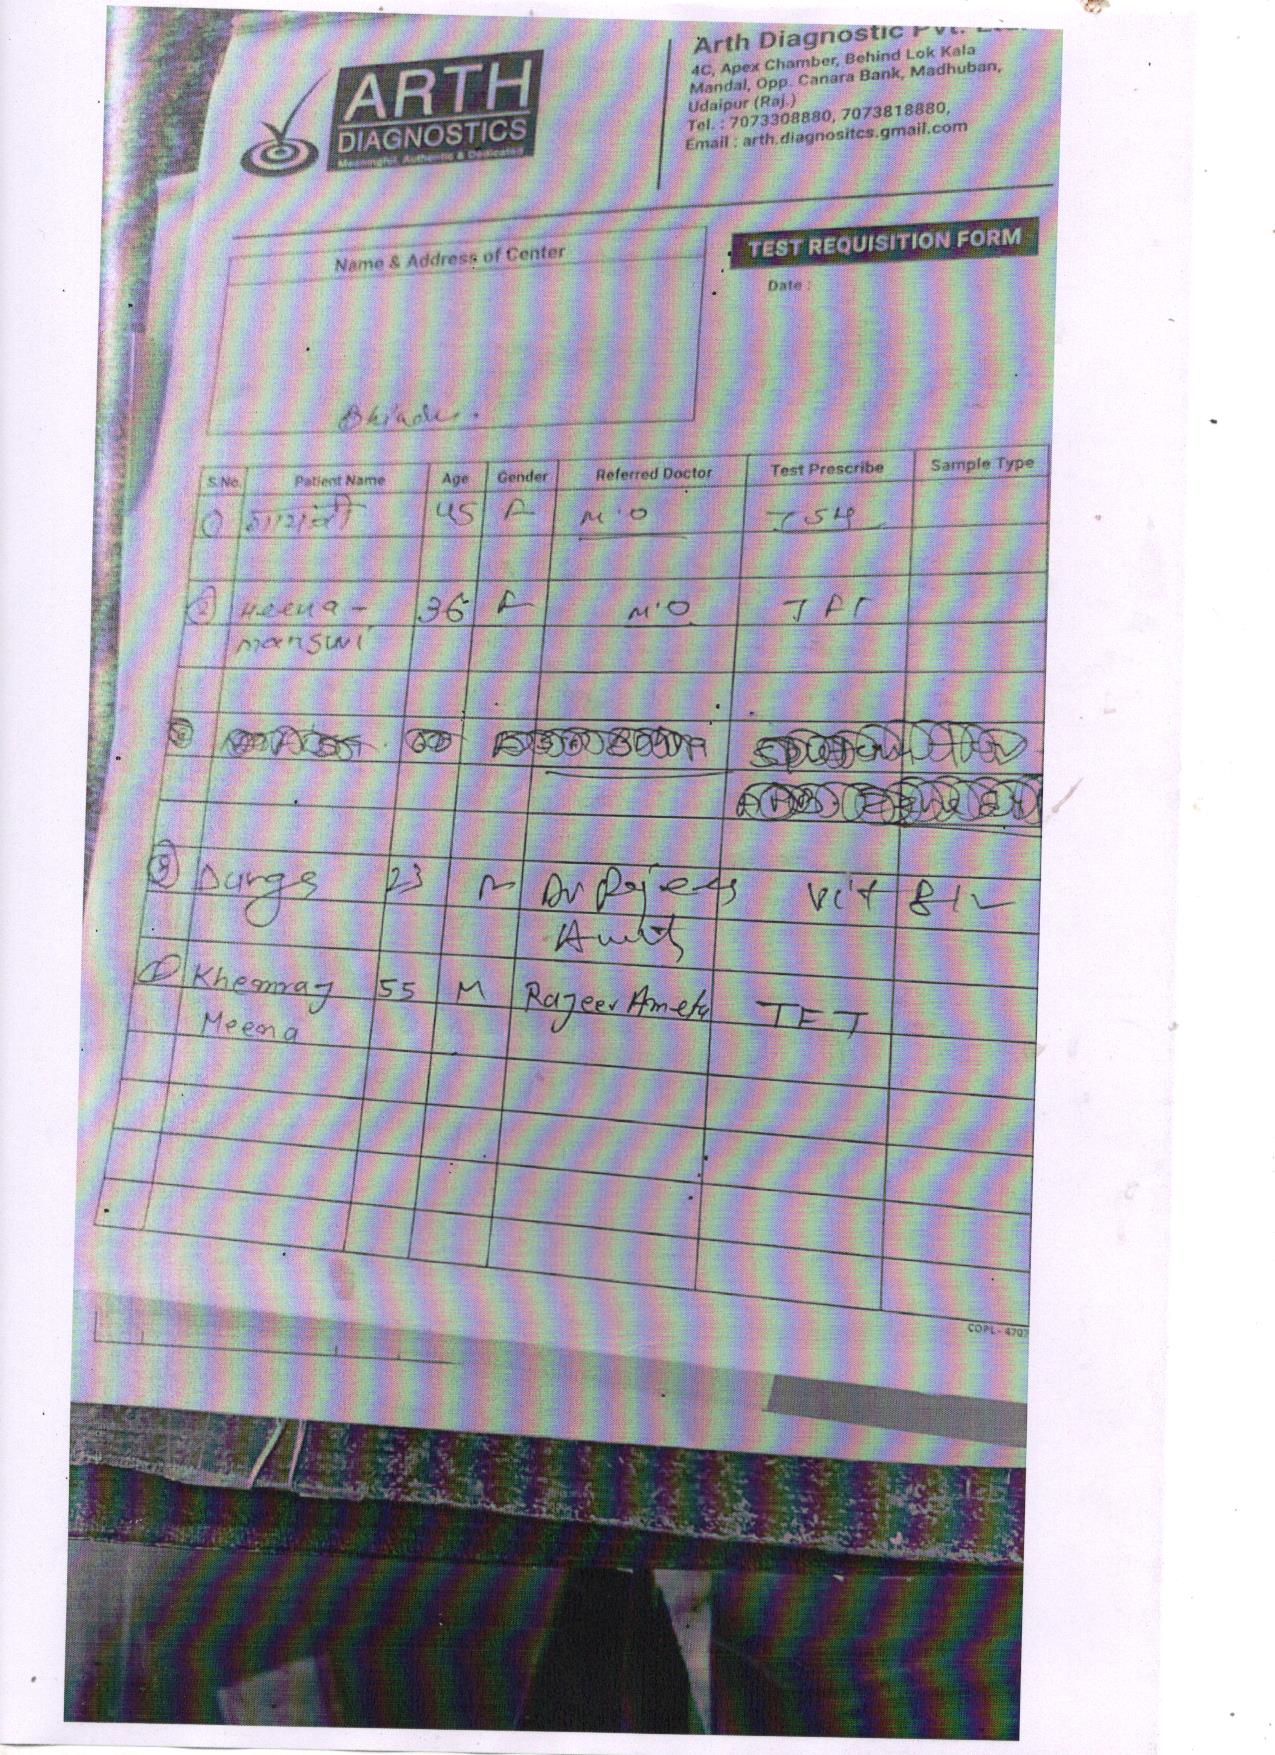 ARTH
DIAGNOSTICS
Meaningful, Authentic & Dedicated
Arth Diagnostic Pvt. Ltd.
4C, Apex Chamber, Behind Lok Kala
Mandal, Opp. Canara Bank, Madhuban,
Udaipur (Raj.)
Tel. : 7073308880, 7073818880,
Email : arth.diagnositcs.gmail.com
Name & Address of Center
TEST REQUISITION FORM
Date :
S.No. Patient Name Age Gender Referred Doctor Test Prescribe Sample Type
1 45 F M.O TSH
2 Heena - 36 F M.O TFT
mansuri
3 Durga 23 Dr Vit B12
4 Khemraj 55 M Rajeev Ameta TFT
Meena
COPL - 4707